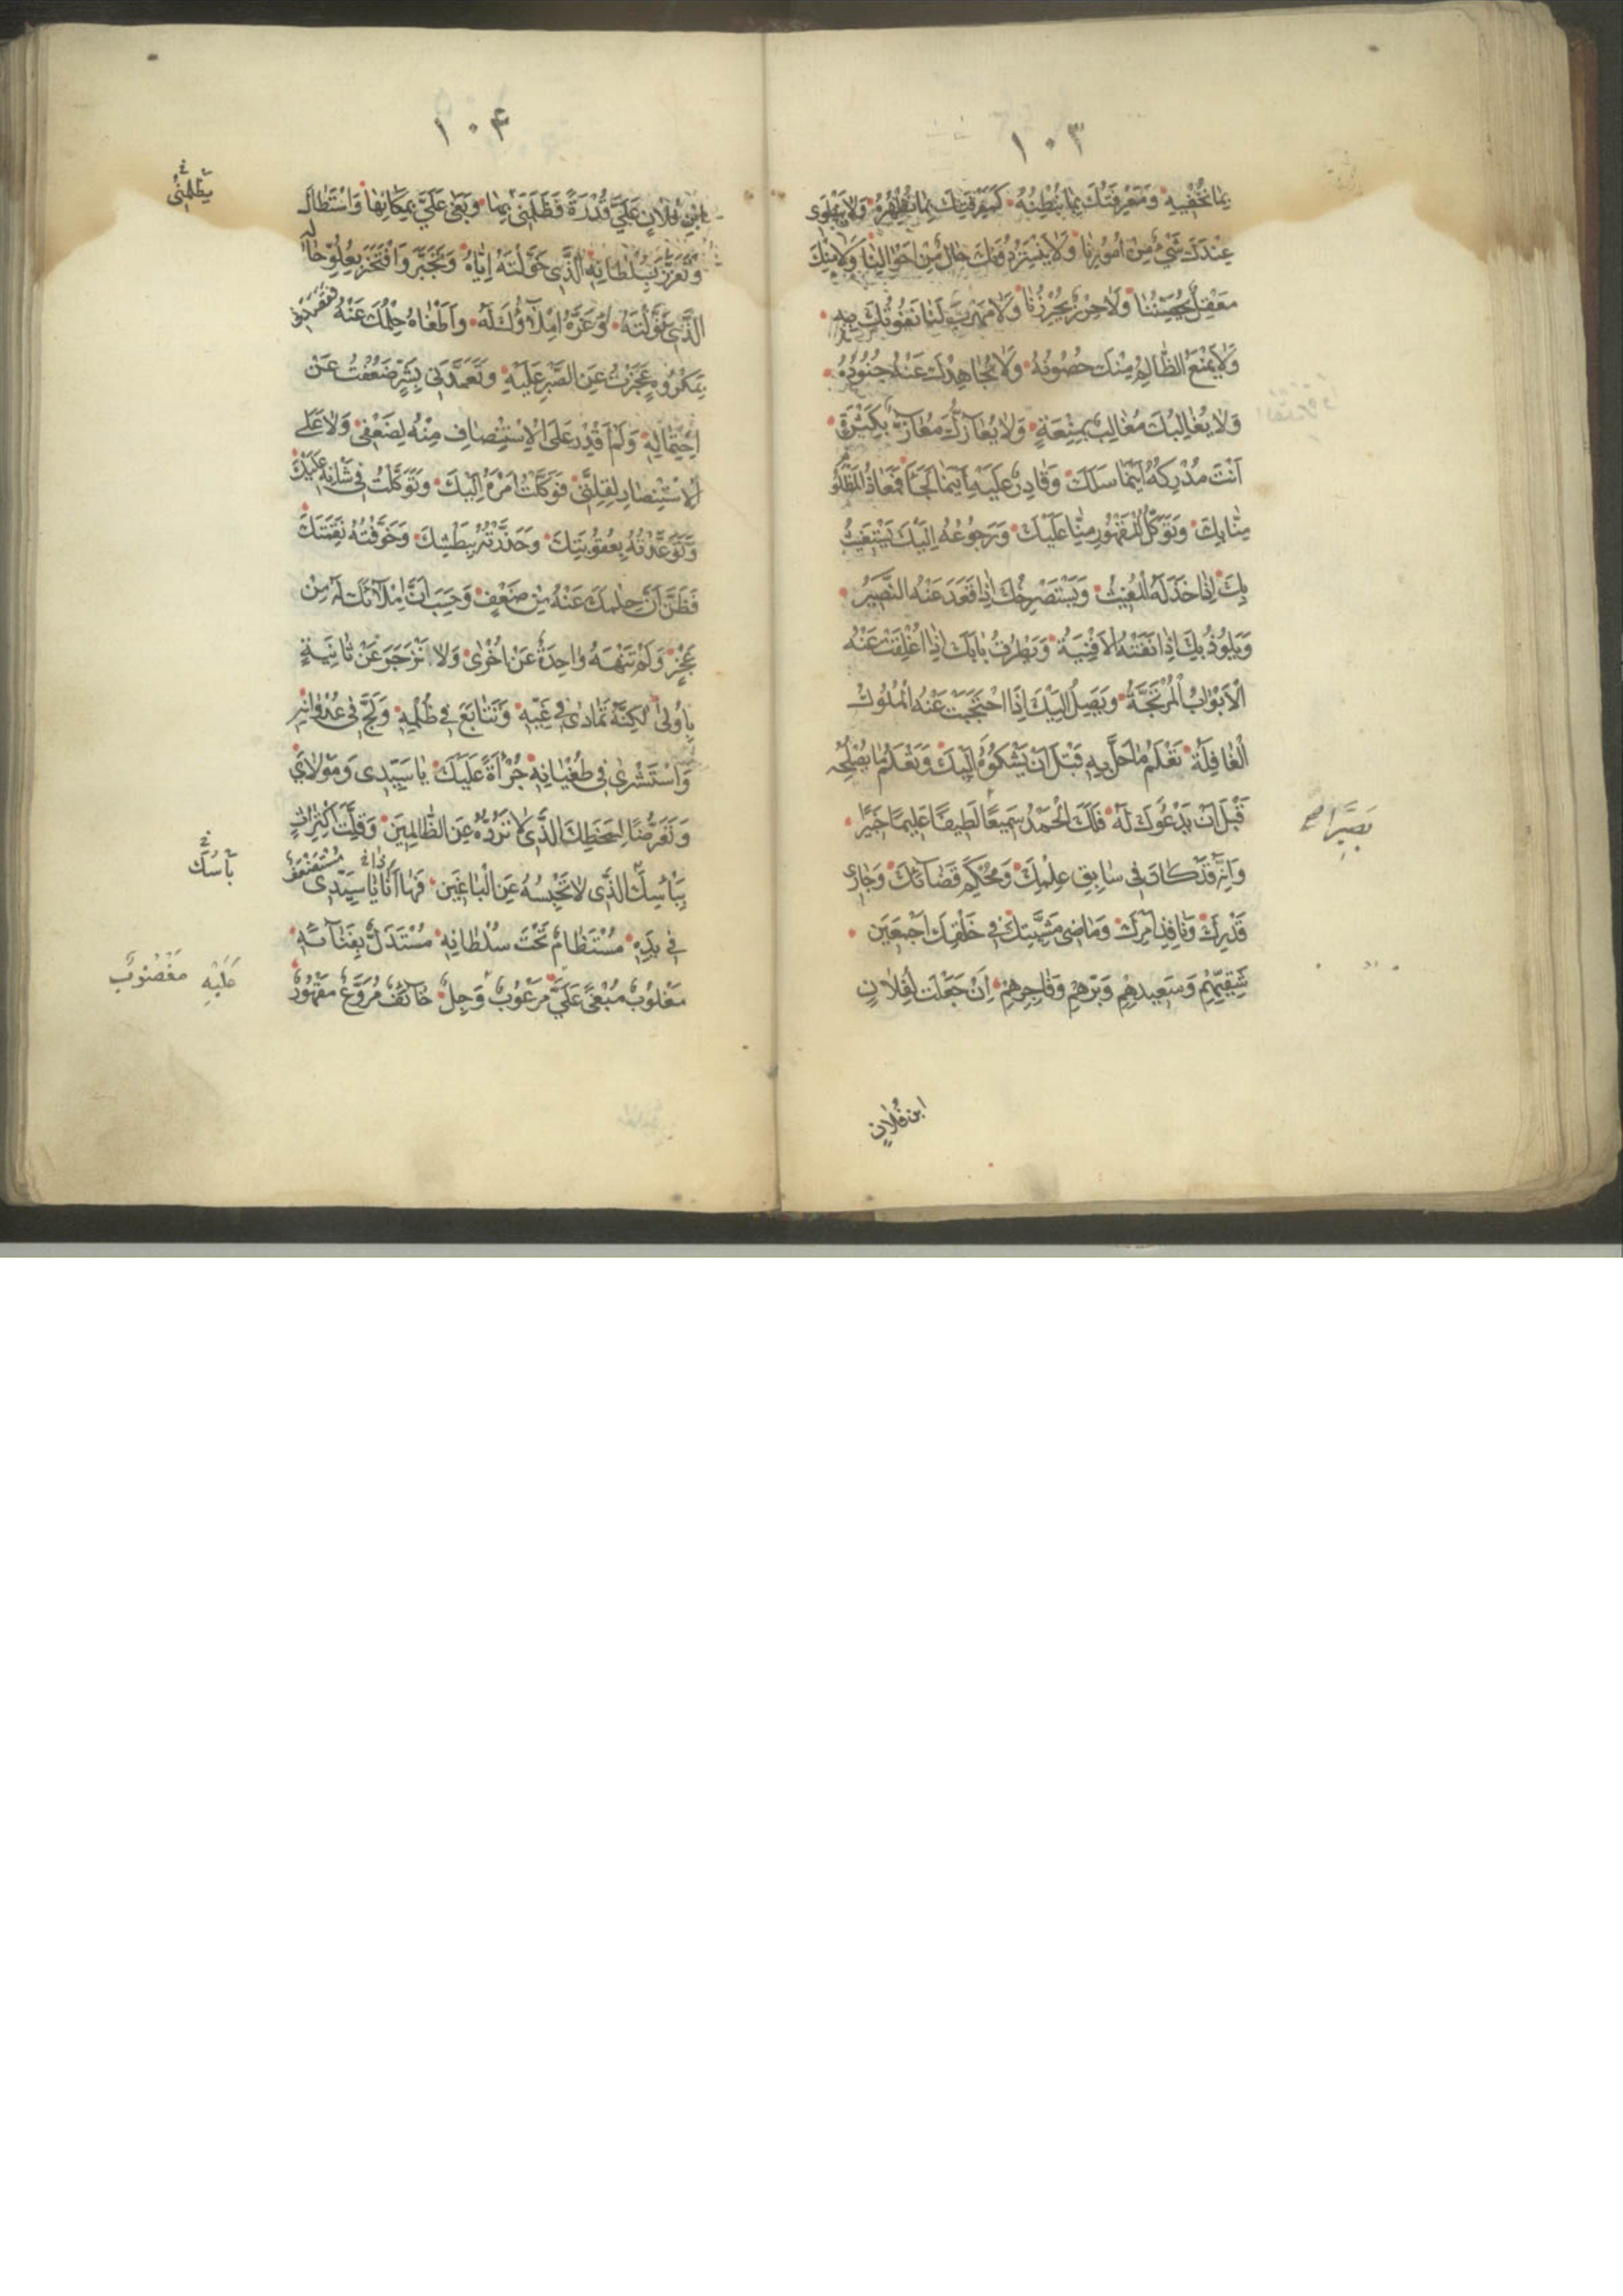 ١٠٣
بِمَا تُخْفِيهِ وَمَعْرِفَتُكَ بِمَا نُبْطِنُهُ كَمَعْرِفَتِكَ بِمَا نُظْهِرُهُ وَلَا يَنْطَوِى
عِنْدَكَ شَىْءٌ مِنْ اُمُورِنَا وَلَا يَسْتَتِرُ دُونَكَ حَالٌ مِنْ اَحْوَالِنَا وَلَا مِنْكَ
مَعْقِلٌ يُحَصِّنُنَا وَلَا حِرْزٌ يُحْرِزُنَا وَلَا مَهْرَبٌ لَنَا نَفُوتُكَ بِهِ
وَلَا يَمْنَعُ الظَّالِمَ مِنْكَ حُصُونُهُ وَلَا يُجَاهِدُكَ عَنْهُ جُنُودُهُ
وَلَا يُغَالِبُكَ مُغَالِبٌ بِمِنْعَةٍ وَلَا يُعَازُّكَ مُعَازٌّ بِكَثْرَةٍ
اَنْتَ مُدْرِكُهُ اَيْنَمَا سَلَكَ وَقَادِرٌ عَلَيْهِ اَيْنَمَا لَجَأَ فَمَعَاذُ الْمَظْلُومِ
مِنَّا بِكَ وَتَوَكُّلُ الْمَقْهُورِ مِنَّا عَلَيْكَ وَرُجُوعُهُ اِلَيْكَ يَسْتَغِيثُ
بِكَ اِذَا خَذَلَهُ الْمُغِيثُ وَيَسْتَصْرِخُكَ اِذَا قَعَدَ عَنْهُ النَّصِيرُ
وَيَلُوذُ بِكَ اِذَا نَفَتْهُ الْاَفْنِيَةُ وَيَطْرُقُ بَابَكَ اِذَا اُغْلِقَتْ عَنْهُ
الْاَبْوَابُ الْمُرْتَجَّةُ وَيَصِلُ اِلَيْكَ اِذَا احْتَجَبَتْ عَنْهُ الْمُلُوكُ
الْغَافِلَةُ تَعْلَمُ مَا حَلَّ بِهِ قَبْلَ اَنْ يَشْكُوَهُ اِلَيْكَ وَتَعْلَمُ مَا يُصْلِحُهُ
قَبْلَ اَنْ يَدْعُوَكَ لَهُ فَلَكَ الْحَمْدُ سَمِيعًا لَطِيفًا عَلِيمًا خَبِيرًا
بَصِيرًا صح
وَاِنَّهُ قَدْ كَانَ فِى سَابِقِ عِلْمِكَ وَمُحْكَمِ قَضَائِكَ وَجَارِى
قَدَرِكَ وَنَافِذِ اَمْرِكَ وَمَاضِى مَشِيَّتِكَ فِى خَلْقِكَ اَجْمَعِينَ
شَقِيِّهِمْ وَسَعِيدِهِمْ وَبَرِّهِمْ وَفَاجِرِهِمْ اَنْ جَعَلْتَ لِفُلَانٍ
ابن فُلَانٍ
١٠۴
ابْنِ فُلَانٍ عَلَىَّ قُدْرَةً فَظَلَمَنِى بِهَا وَبَغَى عَلَىَّ بِمَكَانِهَا وَاسْتَطَالَ
يَظْلِمُنِى
وَتَعَزَّزَ بِسُلْطَانِهِ الَّذِى خَوَّلْتَهُ اِيَّاهُ وَتَجَبَّرَ وَافْتَخَرَ بِعُلُوِّ حَالِهِ
الَّذِى نَوَّلْتَهُ وَغَرَّهُ اِمْلَاؤُكَ لَهُ وَاَطْغَاهُ حِلْمُكَ عَنْهُ فَقَصَدَنِى
بِمَكْرُوهٍ عَجَزْتُ عَنِ الصَّبْرِ عَلَيْهِ وَتَعَمَّدَنِى بِشَرٍّ ضَعُفْتُ عَنْ
احْتِمَالِهِ وَلَمْ اَقْدِرْ عَلَى الْاِسْتِنْصَافِ مِنْهُ لِضَعْفِى وَلَا عَلَى
الْاِسْتِنْصَارِ لِقِلَّتِى فَوَكَلْتُ اَمْرَهُ اِلَيْكَ وَتَوَكَّلْتُ فِى شَانِهِ عَلَيْكَ
وَتَوَعَّدْتُهُ بِعُقُوبَتِكَ وَحَذَّرْتُهُ بِبَطْشِكَ وَخَوَّفْتُهُ نَقِمَتَكَ
فَظَنَّ اَنَّ حِلْمَكَ عَنْهُ مِنْ ضَعْفٍ وَحَسِبَ اَنَّ اِمْلَائَكَ لَهُ مِنْ
عَجْزٍ وَلَمْ تَنْهَهُ وَاحِدَةٌ عَنْ اُخْرَى وَلَا انْزَجَرَ عَنْ ثَانِيَةٍ
بِاُولَى لَكِنَّهُ تَمَادَى فِى غَيِّهِ وَتَتَابَعَ فِى ظُلْمِهِ وَلَجَّ فِى عُدْوَانِهِ
وَاسْتَشْرَى فِى طُغْيَانِهِ جُرْأَةً عَلَيْكَ يَا سَيِّدِى وَمَوْلَاىَ
وَتَعَرُّضًا لِسَخَطِكَ الَّذِى لَا تَرُدُّهُ عَنِ الظَّالِمِينَ وَقِلَّةَ اكْتِرَاثٍ
بِبَأْسِكَ الَّذِى لَا تَحْبِسُهُ عَنِ الْبَاغِينَ فَهَا اَنَا ذَا يَا سَيِّدِى مُسْتَضْعَفٌ
بَأْسُكَ
فِى يَدِهِ مُسْتَضَامٌ تَحْتَ سُلْطَانِهِ مُسْتَذَلٌّ بِفَنَائِهِ
عَلَيْهِ مَغْضُوبٌ
مَغْلُوبٌ مَبْغِىٌّ عَلَىَّ مَرْعُوبٌ وَجِلٌ خَائِفٌ مُرَوَّعٌ مَقْهُورٌ